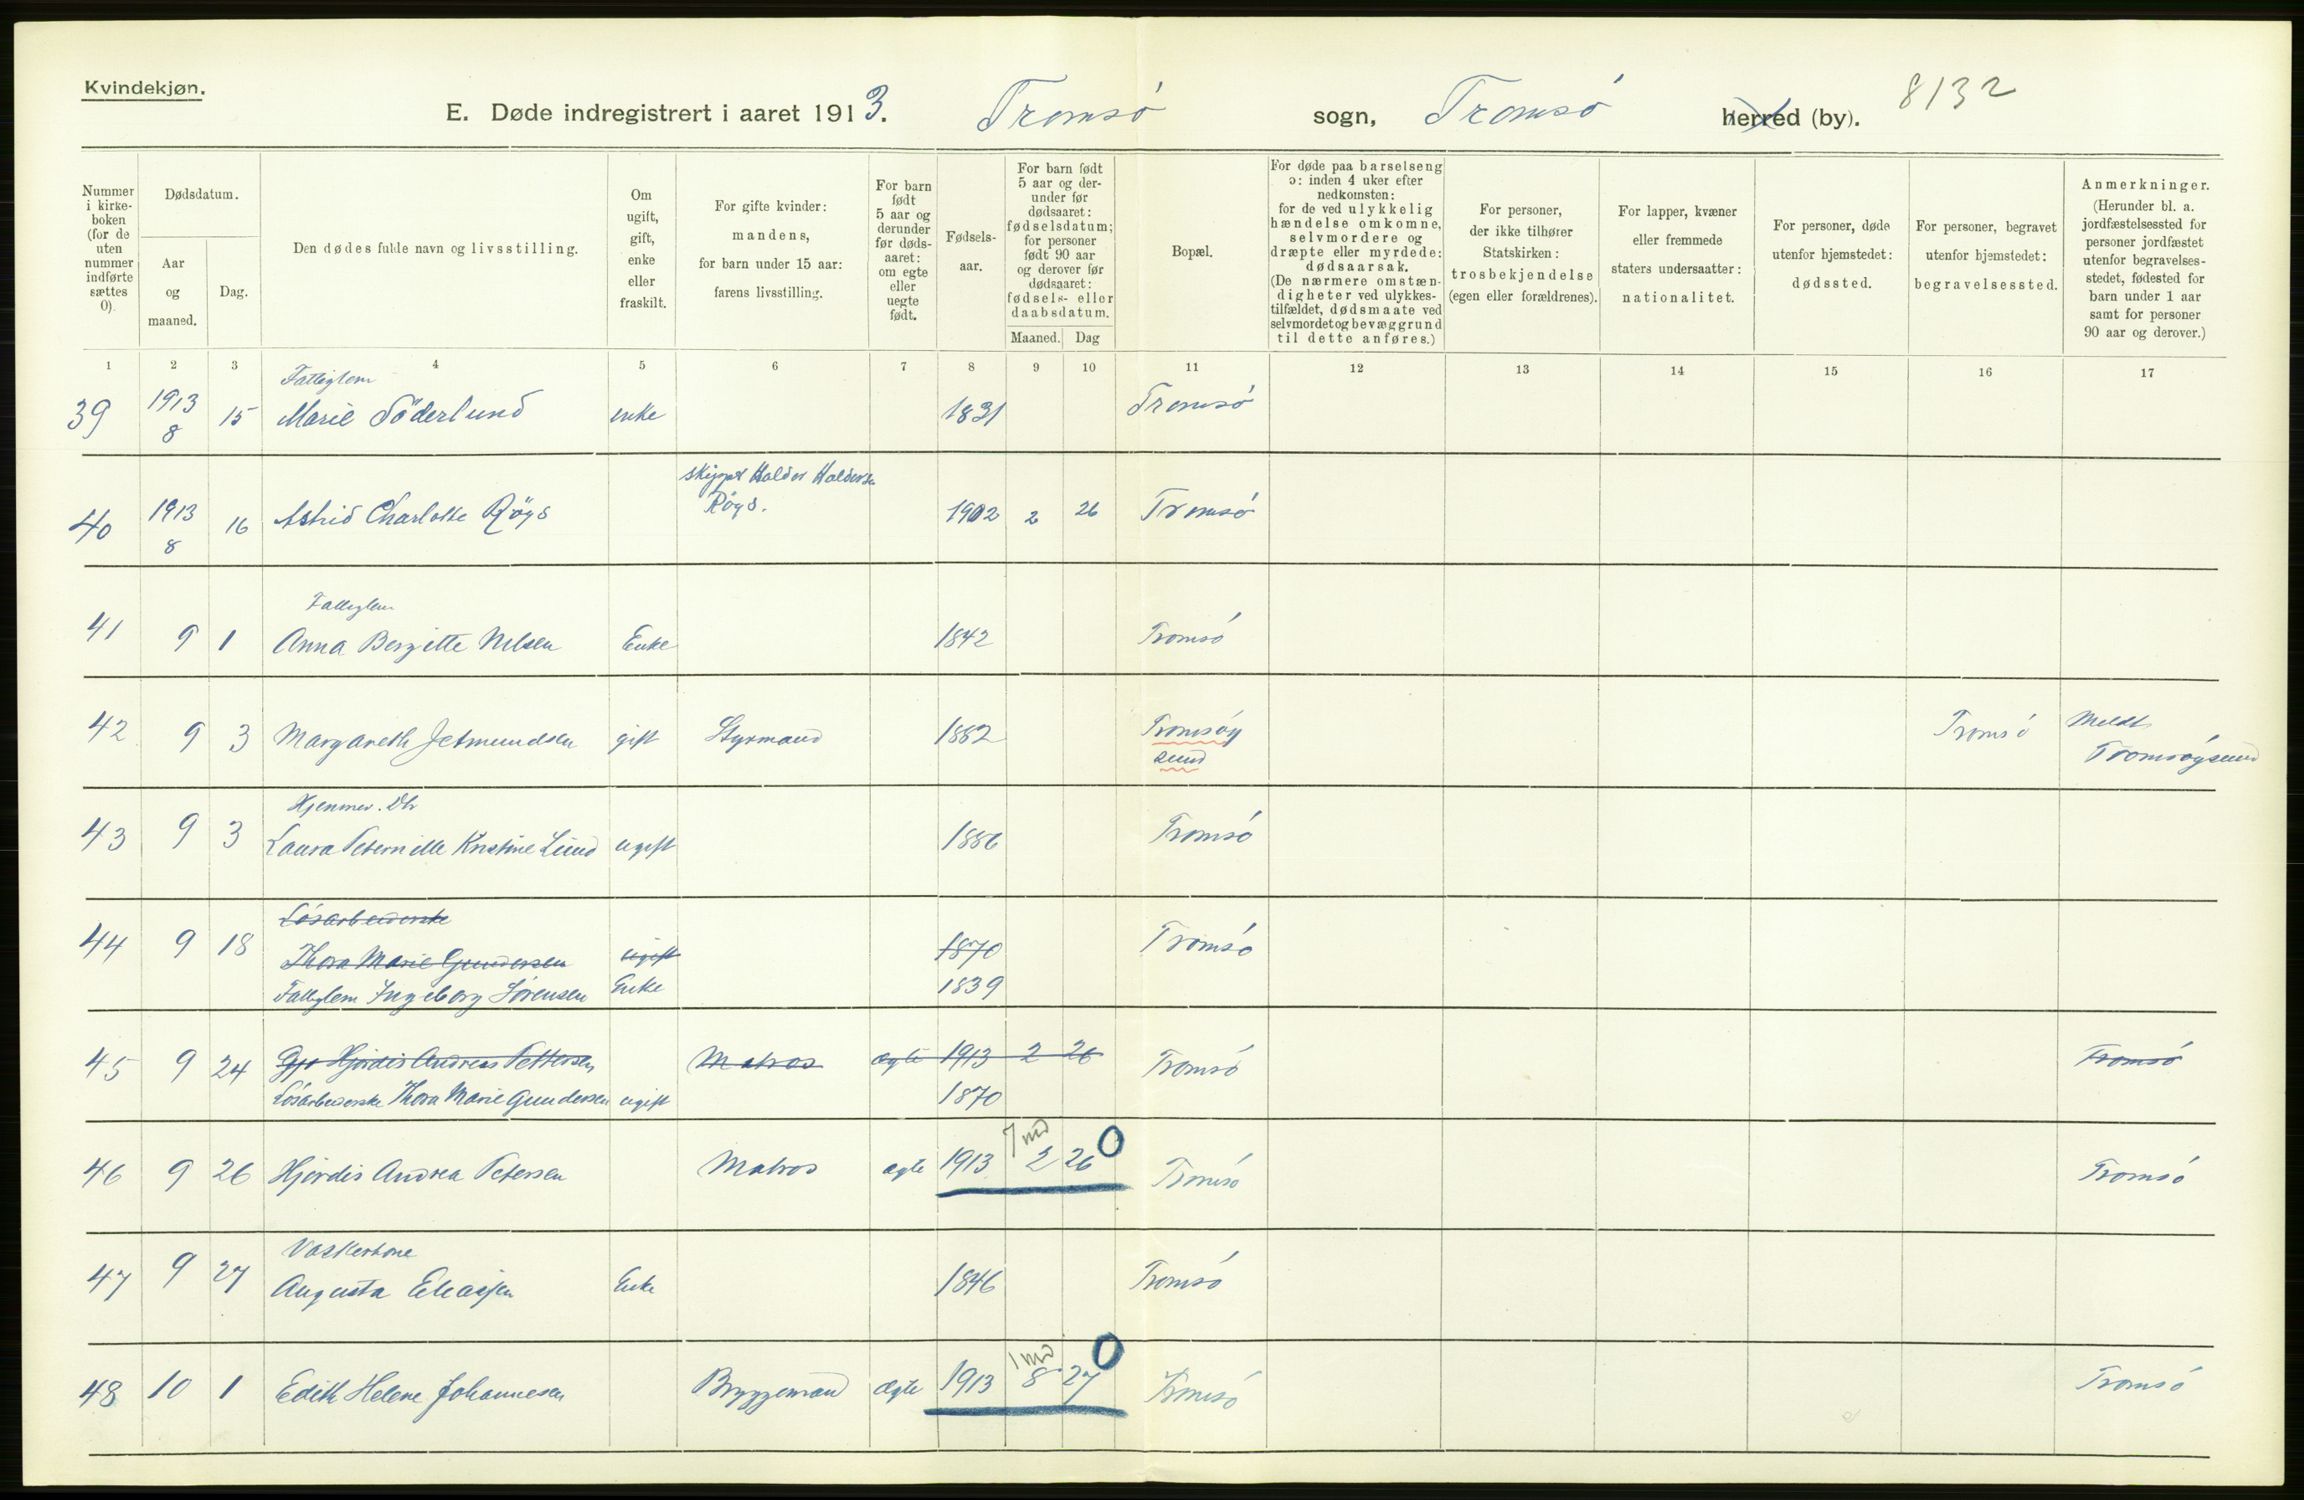 Kvindekjøn.
E. Døde indregistrert i aaret 1913. Tromsö sogn, Tromsö herred (by). 8132
Nummer i kirkeboken (for de uten nummer indførte sættes 0).
Dødsdatum.
Aar og maaned.
Dag.
Den dødes fulde navn og livsstilling.
Om ugift, gift, enke eller fraskilt.
For gifte kvinder: mandens, for barn under 15 aar: farens livsstilling.
For barn født 5 aar og derunder før dødsaaret: om egte eller uegte født.
Fødselsaar.
For barn født 5 aar og derunder før dødsaaret: fødselsdatum; for personer født 90 aar og derover før dødsaaret: fødsels- eller daabsdatum.
Maaned. Dag
Bopæl.
For døde paa barselseng ɔ: inden 4 uker efter nedkomsten: for de ved ulykkelig hændelse omkomne, selvmordere og dræpte eller myrdede: dødsaarsak. (De nærmere omstændigheter ved ulykkestilfældet, dødsmaate ved selvmordet og bevæggrund til dette anføres.)
For personer, der ikke tilhører Statskirken: trosbekjendelse (egen eller forældrenes).
For lapper, kvæner eller fremmede staters undersaatter: nationalitet.
For personer, døde utenfor hjemstedet: dødssted.
For personer, begravet utenfor hjemstedet: begravelsessted.
Anmerkninger. (Herunder bl. a. jordfæstelsessted for personer jordfæstet utenfor begravelsesstedet, fødested for barn under 1 aar samt for personer 90 aar og derover.)
1 2 3 4 5 6 7 8 9 10 11 12 13 14 15 16 17
Fattiglem
39 1913 8 15 Marie Söderlund enke 1831 Tromsö
skipper Haldor Haldorsen
40 1913 8 16 Astrid Charlotte Röys Röys. 1902 2 26 Tromsö
Fattiglem
41 9 1 Anna Bergitte Nilsen Enke 1842 Tromsö
42 9 3 Margareth Jetmundsen gift Styrmand 1882 Tromsöysund Tromsö Meldt Tromsöysund
Hjemmev. Dtr
43 9 3 Laura Peternille Kristine Lund ugift 1886 Tromsö
Lösarbeiderske
44 9 18 Thora Marie Gundersen ugift 1870 Tromsö
Fattiglem Ingeborg Sörensen Enke 1839
45 9 24 Hjördis Andreas Pettersen Matros ægte 1913 2 26 Tromsö Tromsö
Lösarbeiderske Thora Marie Gundersen ugift 1870
7 md 0
46 9 26 Hjördis Andrea Petersen Matros ægte 1913 2 26 Tromsö Tromsö
Vaskerkone
47 9 27 Augusta Eleasen Enke 1846 Tromsö
1 md 0
48 10 1 Edith Helene Johannesen Bryggemand ægte 1913 8 27 Tromsö Tromsö